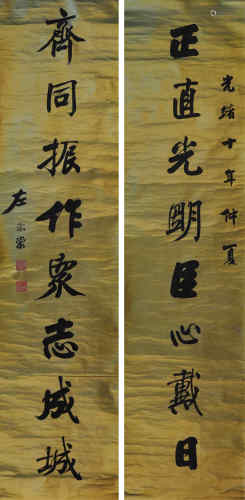 光緒十年仲夏
正直光明臣心戴日
齊同振作眾志成城
左宗棠